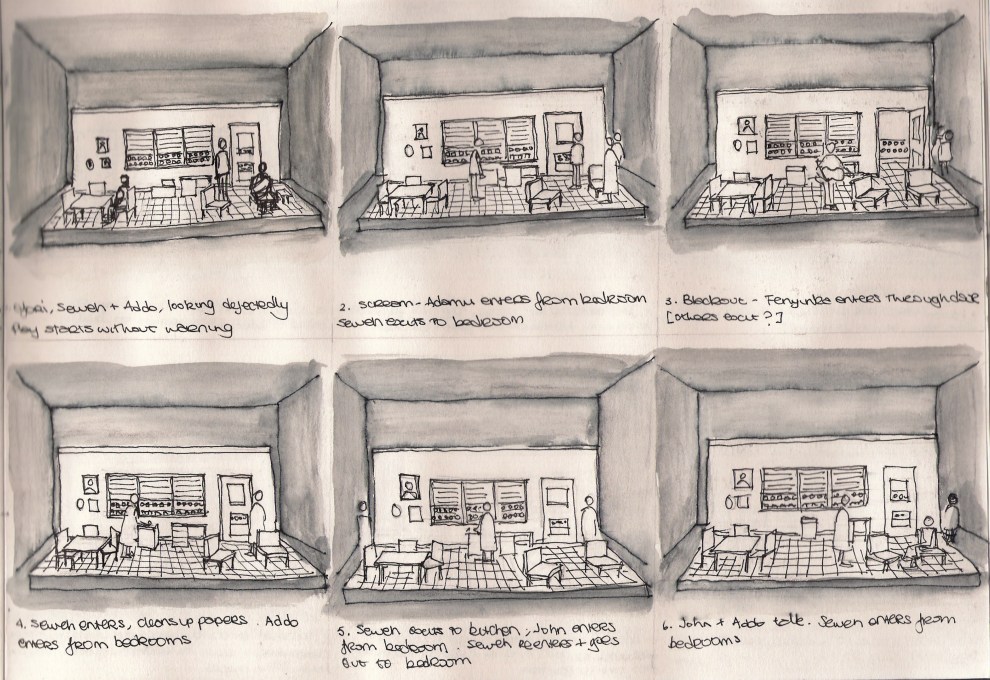 Seweh + Addo, looking dejectedly
Play starts without warning
2. Scream - Adamu enters from bedroom
Seweh exits to bedroom
3. Blackout - Fenyinka enters through door
[others exit?]
4. Seweh enters, cleans up papers. Addo
enters from bedrooms
5. Seweh exits to kitchen, John enters
from bedroom. Seweh reenters + goes
out to bedroom
6. John + Addo talk. Sewen enters from
bedrooms